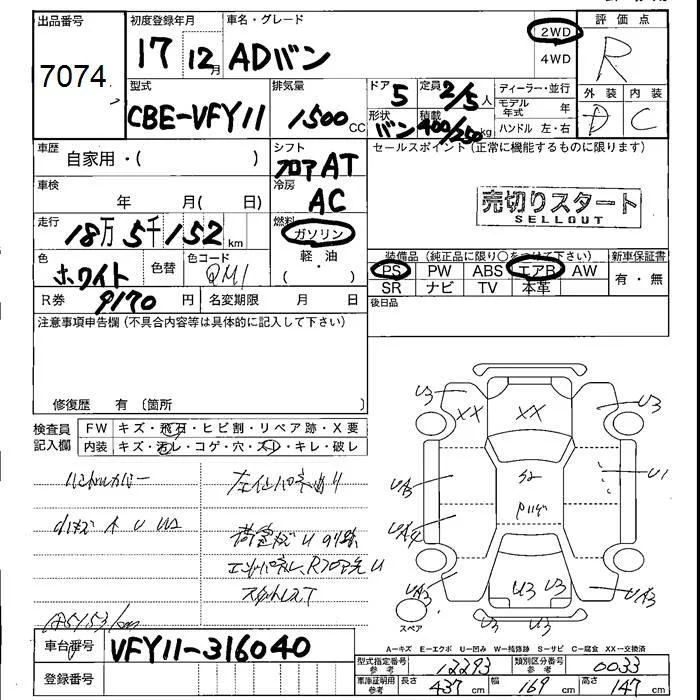 出品番号
7074
初度登録年月
17 12月
車名・グレード
ADバン
2WD
4WD
評価点
R
型式
CBE-VFY11
排気量
1500cc
ドア
5
定員
2/5人
形状
バン
積載
400/250kg
ディーラー・並行
モデル年式 年
ハンドル 左・右
外装 内装
D C
車歴
自家用・( )
シフト
フロアAT
セールスポイント(正常に機能するものに限ります)
車検
年 月( 日)
冷房
AC
売切りスタート
SELLOUT
走行
18万5千152km
燃料
ガソリン
軽・油
・( )
色
ホワイト
色替
色コード
QM1
装備品(純正品に限り○をつけて下さい)
新車保証書
PS PW ABS エアB AW
SR ナビ TV 本革
有・無
R券 9170円
名変期限 月 日
後日品
注意事項申告欄(不具合内容等は具体的に記入して下さい)
修復歴 有〔箇所 〕
検査員記入欄
FW キズ・飛石・ヒビ割・リペア跡・X要
内装 キズ・汚レ・コゲ・穴・スレ・キレ・破レ
U3
XX
XX
U3
UA3
S2
U1
UA4
UA3
U3 U3
UA3
U3 U3
スペア
A－キズ E－エクボ U－凹み W－補修跡 S－サビ C－腐食 XX－交換済
車台番号
VFY11-316040
登録番号
型式指定番号 参考
12293
類別区分番号 参考
0033
車庫証明用 参考
長さ 437cm
幅 169cm
高さ 147cm